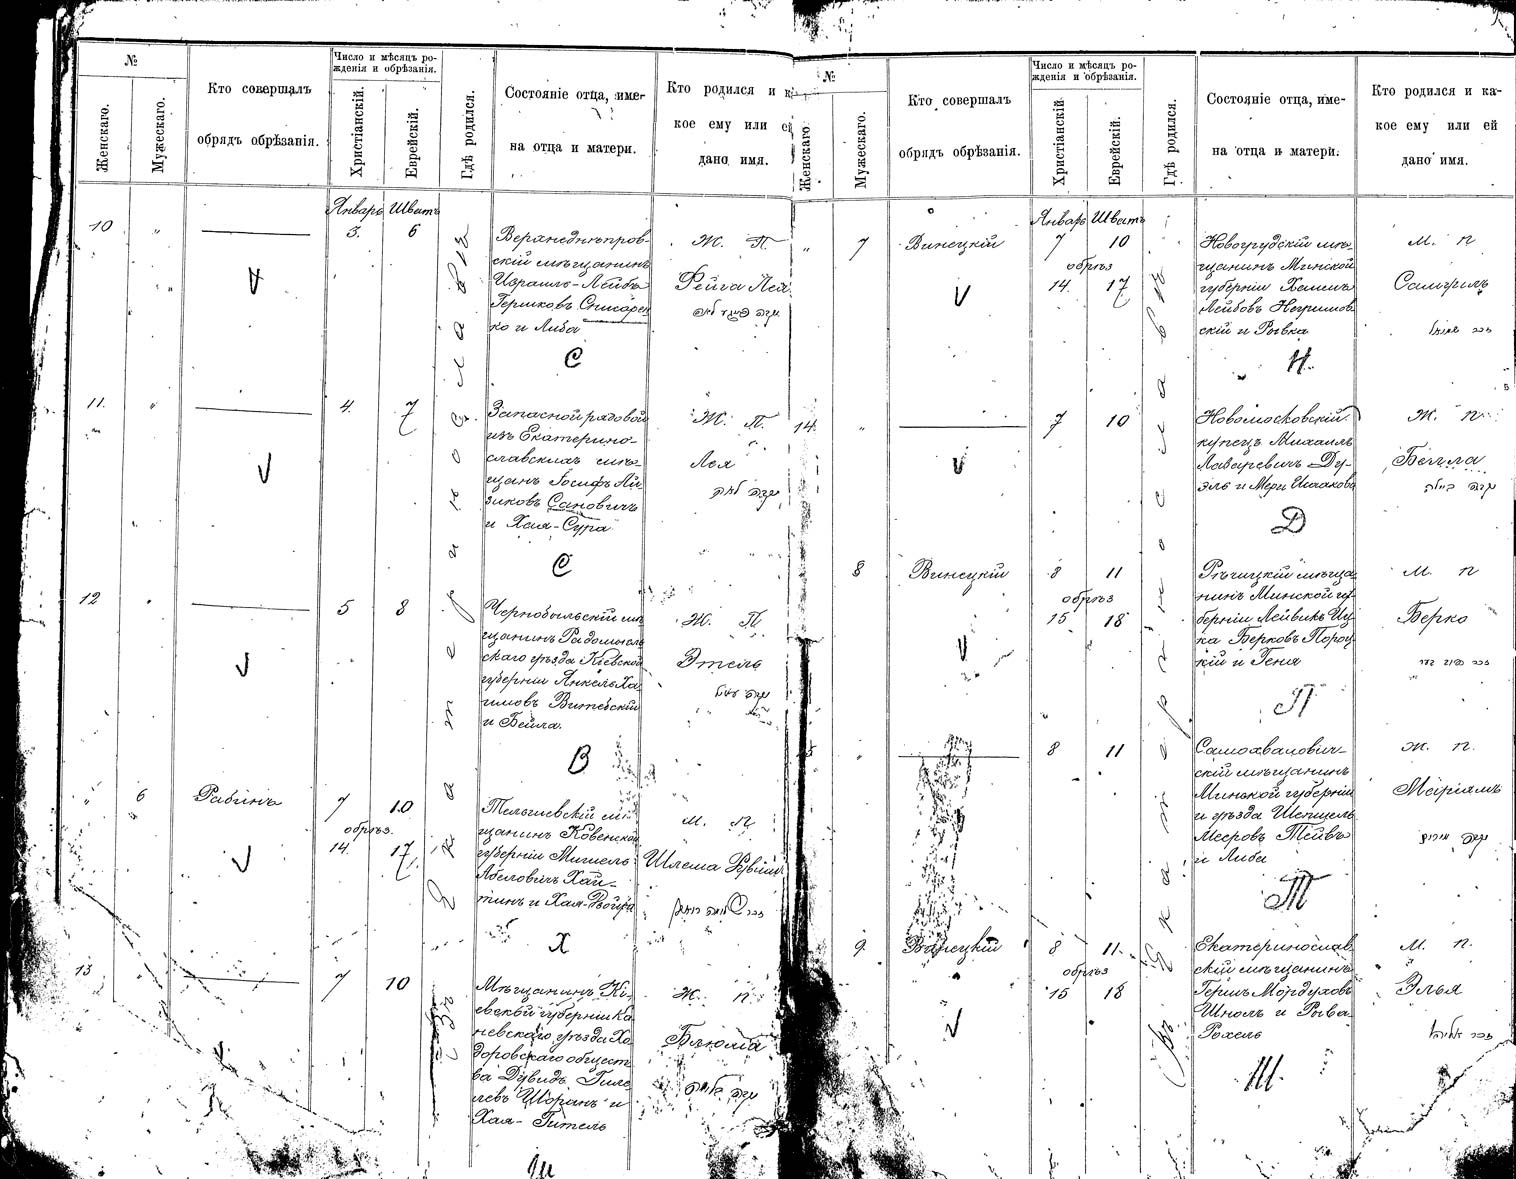 №
Женскаго.
Мужескаго.
Кто совершалъ
обрядъ обрѣзанія.
Число и мѣсяцъ ро-
жденія и обрѣзанія.
Христіанскій.
Еврейскій.
Гдѣ родился.
Состояніе отца, име-
на отца и матери.
Кто родился и к
кое ему или ей
дано имя.
Январь Шватъ
Въ Екатеринославѣ
10 „ 3. 6
Верхнеднѣпров-
скій мѣщанинъ
Израиль-Лейбъ
Гершковъ Списарен
ко и Либа
С
Ж. П.
Фейга Лея
11. „ 4. 7
Запасной рядовой
изъ Екатерино-
славскихъ мѣ-
щанъ Іосифъ Ай-
зиковъ Сановичъ
и Хая-Сура
С
Ж. П.
Лея
נקבה לאה
12 „ 5 8
Чернобыльскій мѣ
щанинъ Радомысль
скаго уѣзда Кіевской
губерніи Янкель Ха-
имовъ Витебскій
и Бейла.
В
Ж. П
Этель
„ 6 Рабинъ 7 10
обрѣз.
14. 17
Тельшевскій мѣ
щанинъ Ковенской
губерніи
Абеловичъ Хай-
тинъ и Хая-Двойра
Х
М. П
Шлема Рувинъ
13 „ 7 10
Мѣщанинъ Кі-
евской губерніи Ка
невскаго уѣзда Хо
доровскаго общест
ва Дувидъ
и
Хая-Гитель
Ш
Ж. П.
Блюма
נקבה בלומה
№
Женскаго
Мужескаго.
Кто совершалъ
обрядъ обрѣзанія.
Число и мѣсяцъ ро-
жденія и обрѣзанія.
Христіанскій
Еврейскій.
Гдѣ родился.
Состояніе отца, име-
на отца и матери.
Кто родился и ка-
кое ему или ей
дано имя.
Январь Шватъ
Въ Екатеринославѣ
„ 7 Винецкій 7 10
обрѣз
14. 17
Новогрудскій мѣ-
щанинъ Минской
губерніи
Лейбовъ
скій и Рывка
Н.
М. П
Самуилъ
זכר שמואל
14. „ 7 10
Новомосковскій
купецъ Михаилъ
Лазаревичъ Ду-
эль и Мери Исаакова
Д
Ж. П
Бейла
נקבה ביילה
8 Винецкій 8 11
обрѣз
15 18
Рѣчицкій мѣща
нинъ Минской гу
берніи Лейвикъ Иц
ка Берковъ Пороц
кій и Геня
П
М. П
Берко
„ 8 11
Самохвалович-
скій мѣщанинъ
Минской губерніи
и уѣзда Шепшель
Мееровъ Тейвъ
и Либа
Т
Ж. П.
Меіріамъ
נקבה מרים
9. Винецкій 8 11.
обрѣз
15 18
Екатеринослав
скій мѣщанинъ
Гершъ Мордуховъ
Шполь и Рыва-
Рохель
Ш.
М. П.
Элья